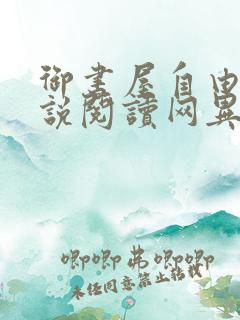 御書屋自由
說閱讀网異
唧唧弗唧唧
未经同意禁止转载